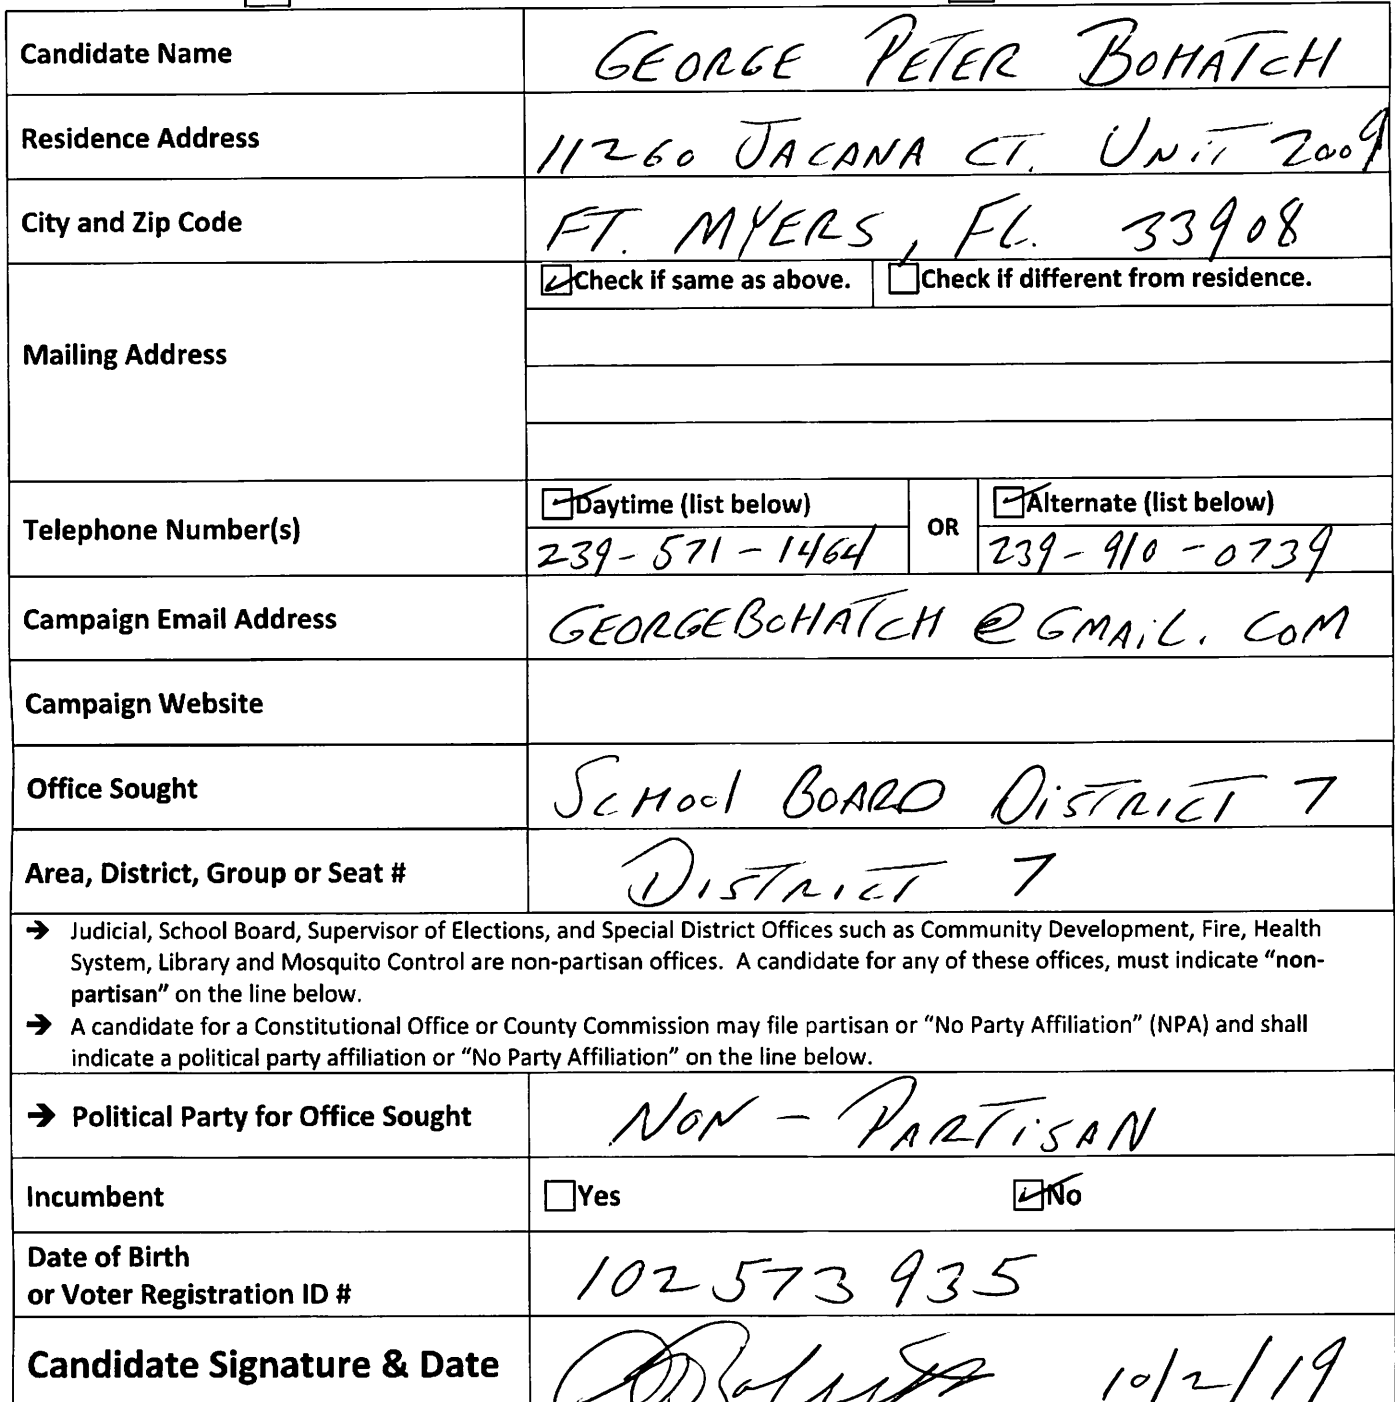 Candidate Name GEORGE PETER BOHATCH
Residence Address 11260 JACANA CT. UNIT 2009
City and Zip Code FT. MYERS, FL. 33908
Check if same as above. Check if different from residence.
Mailing Address
Daytime (list below) OR Alternate (list below)
Telephone Number(s) 239-571-1464 239-910-0739
Campaign Email Address GEORGEBOHATCH@GMAIL.COM
Campaign Website
Office Sought SCHOOL BOARD DISTRICT 7
Area, District, Group or Seat # DISTRICT 7
→ Judicial, School Board, Supervisor of Elections, and Special District Offices such as Community Development, Fire, Health
System, Library and Mosquito Control are non-partisan offices. A candidate for any of these offices, must indicate “non-
partisan” on the line below.
→ A candidate for a Constitutional Office or County Commission may file partisan or “No Party Affiliation” (NPA) and shall
indicate a political party affiliation or “No Party Affiliation” on the line below.
→ Political Party for Office Sought NON-PARTISAN
Incumbent Yes No
Date of Birth
or Voter Registration ID # 102573935
Candidate Signature & Date 10/2/19